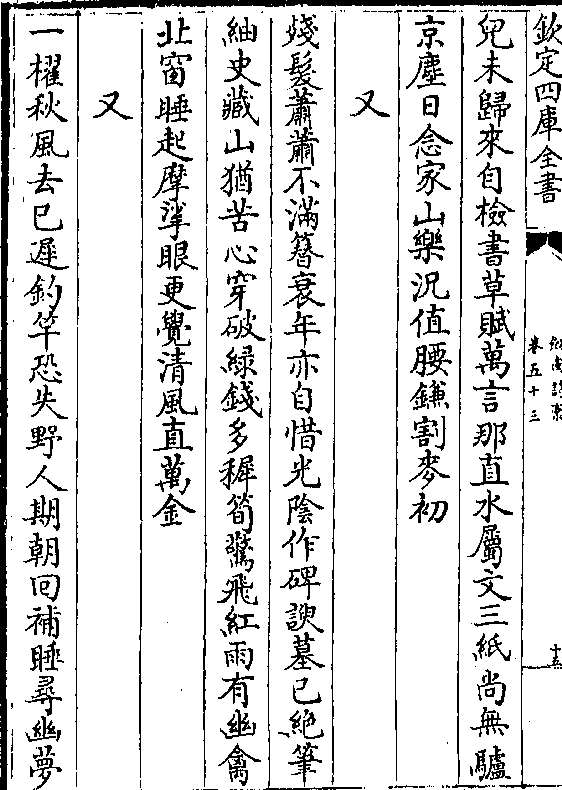 欽定四庫全書
卷五十三
十五
兒未歸來自檢書草賦萬言那直水屬文三紙尚無驢
京塵日念家山樂況值腰鎌割麥初
又
殘髮蕭蕭不滿簪衰年亦自惜光陰作碑諛墓已絕筆
紬史藏山猶苦心穿破綠錢多稺筍驚飛紅雨有幽禽
北窗睡起摩挲眼更覺清風直萬金
又
一櫂秋風去已遲釣竿恐失野人期朝回補睡尋幽夢